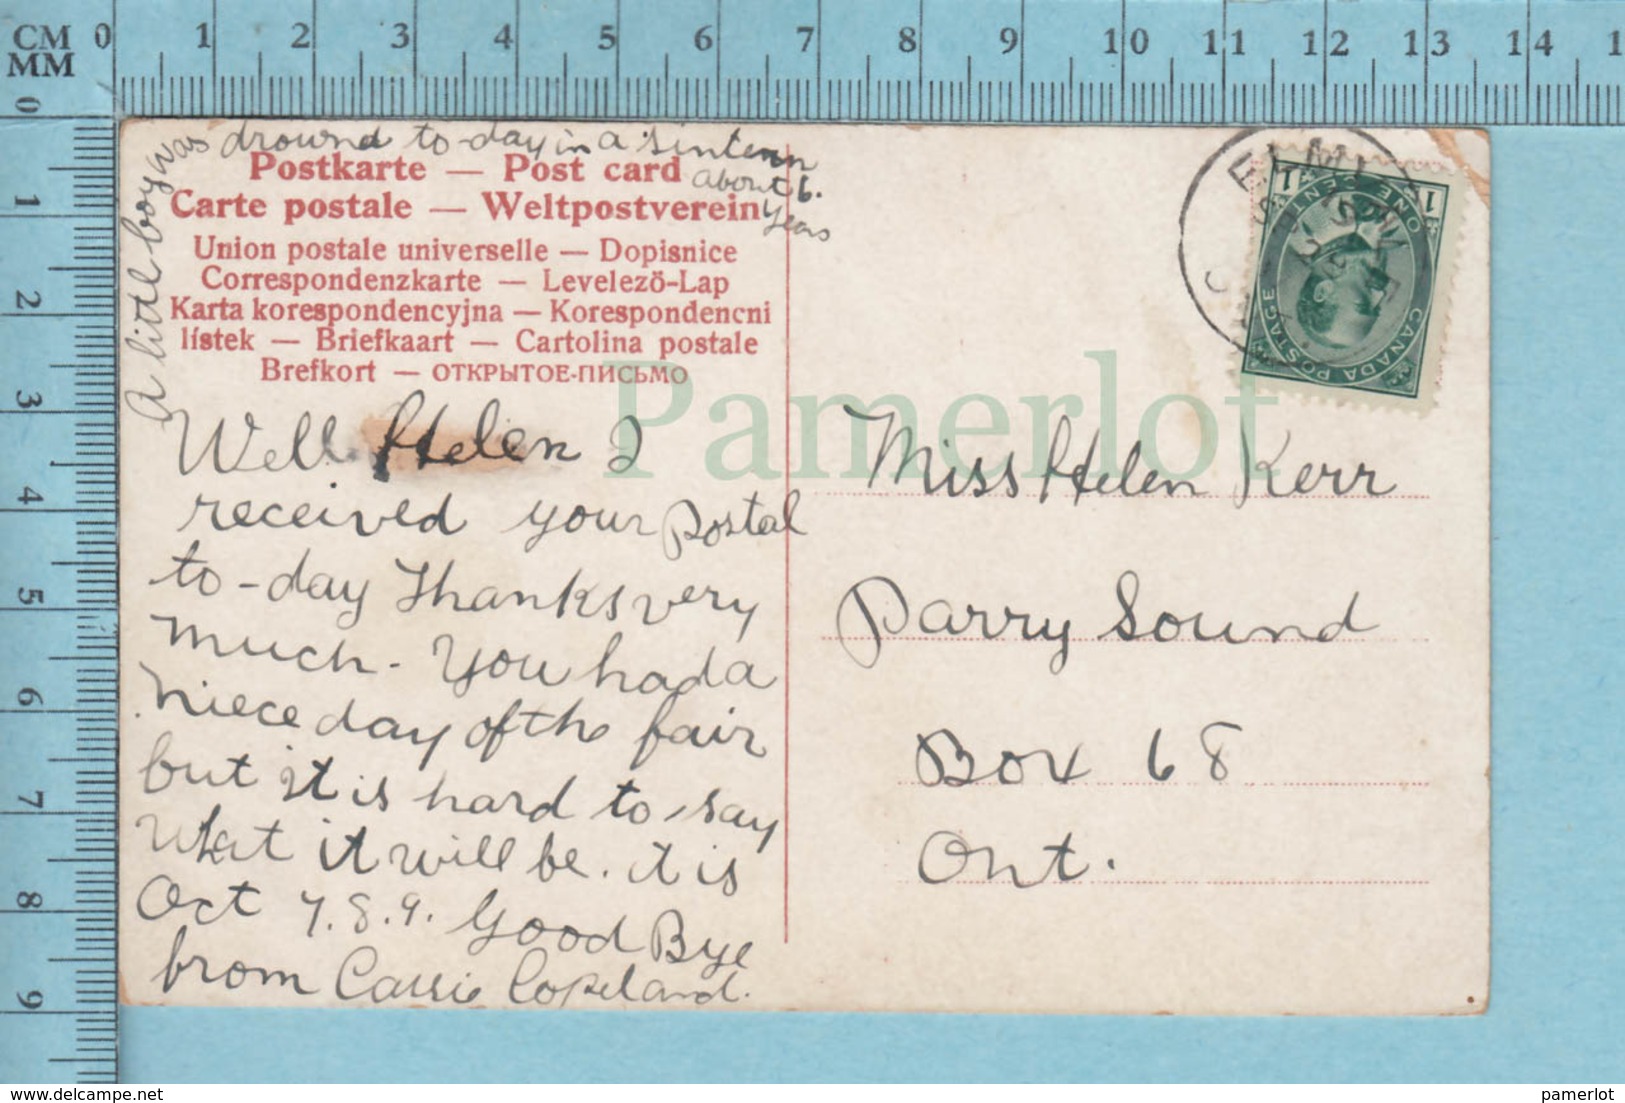 CM 0 1 2 3 4 5 6 7 8 9 10 11 12 13 14 1
MM
0 1 2 3 4 5 6 7 8 9
A little boy was drownd to-day in a sintern
about 6.
years
Postkarte — Post card
Carte postale — Weltpostverein
Union postale universelle — Dopisnice
Correspondenzkarte — Levelezö-Lap
Karta korespondencyjna — Korespondencni
lístek — Briefkaart — Cartolina postale
Brefkort — ОТКРЫТОЕ-ПИСЬМО
Well Helen I
received your postal
to-day Thanks very
much. You had a
niece day of the fair
but it is hard to say
what it will be. it is
Oct 7.8.9. Good Bye
from Cassie Copeland.
CANADA POSTAGE
ONE CENT
1 1
Miss Helen Kerr
Parry Sound
Box 68
Ont.
Pamerlot
pamerlot